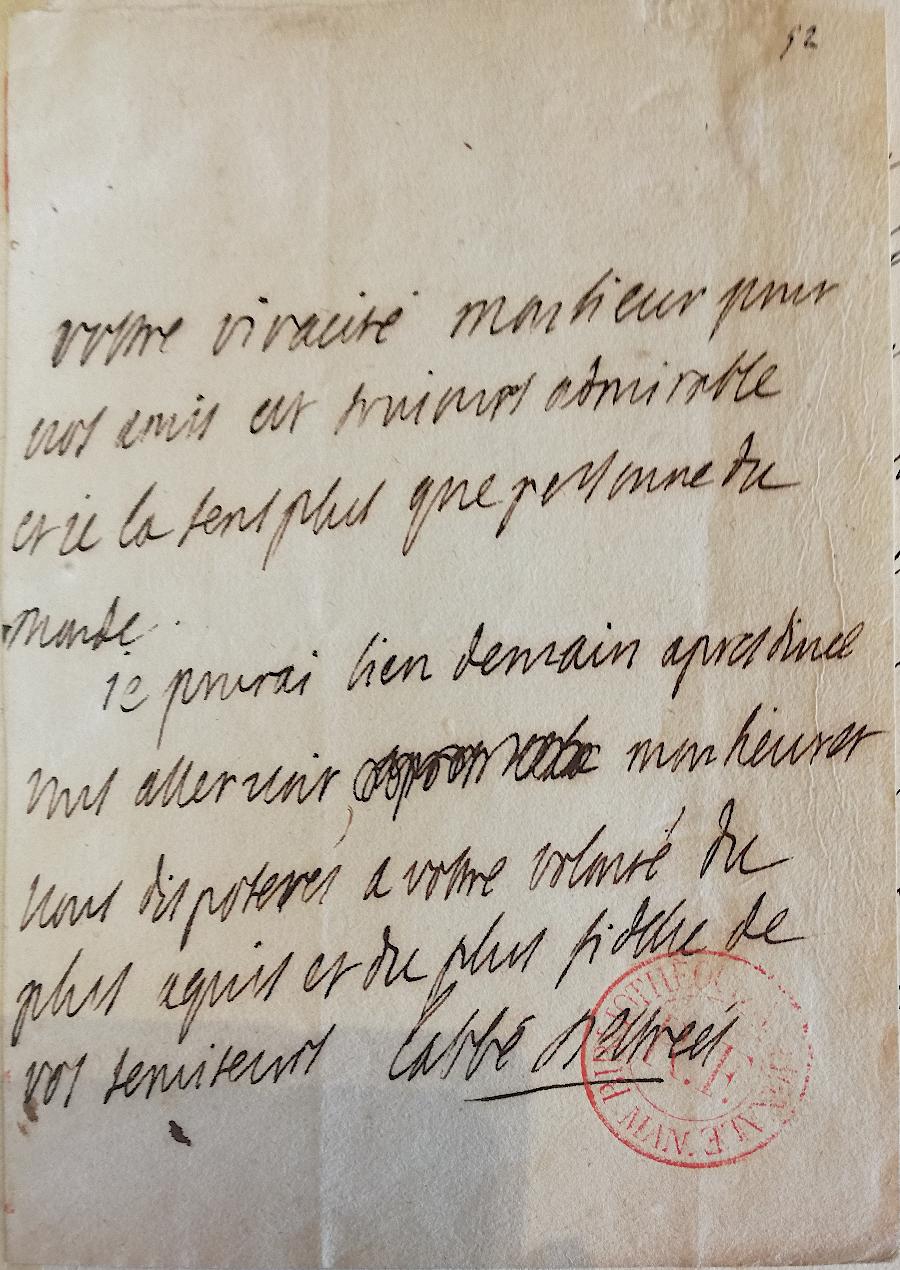 52
vostre vivacité monsieur pour
vos amis est touiours admirable
et ie la sens plus que personne du
monde.
ie pourai bien demain apres diner
vous aller voir monsieur et
vous disposerés a vostre volonté du
plus aquis et du plus fidelle de
vos serviteurs l'abbé d'estreés